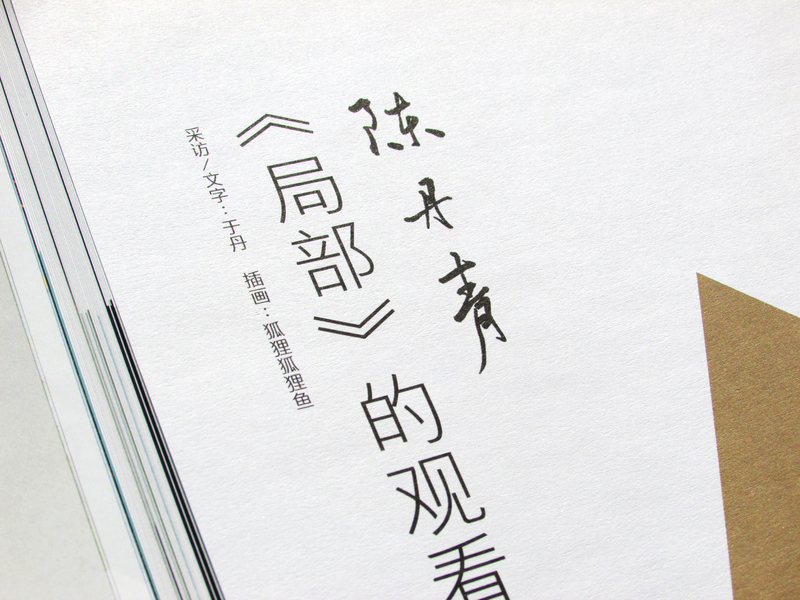 陈丹青
《局部》的观看
采访/文字：于丹 插画：狐狸狐狸鱼